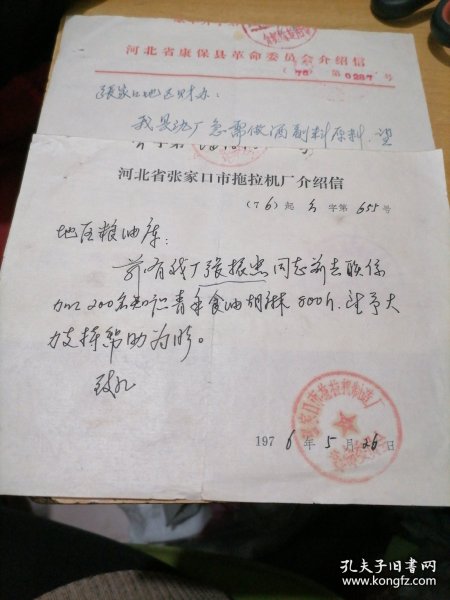 河北省康保县革命委员会介绍信
(76) 第0287号
张家口地区财办:
我县酒厂急需做酒副料原料,望
河北省张家口市拖拉机厂介绍信
(76)起 字第655号
地区粮油库:
兹有我厂张振忠同志前去联系
加工200名知识青年食油胡麻800斤,望予大
力支持帮助为盼。
致礼
张家口市拖拉机制造厂
1976年5月26日
孔夫子旧书网
www.kongfz.com